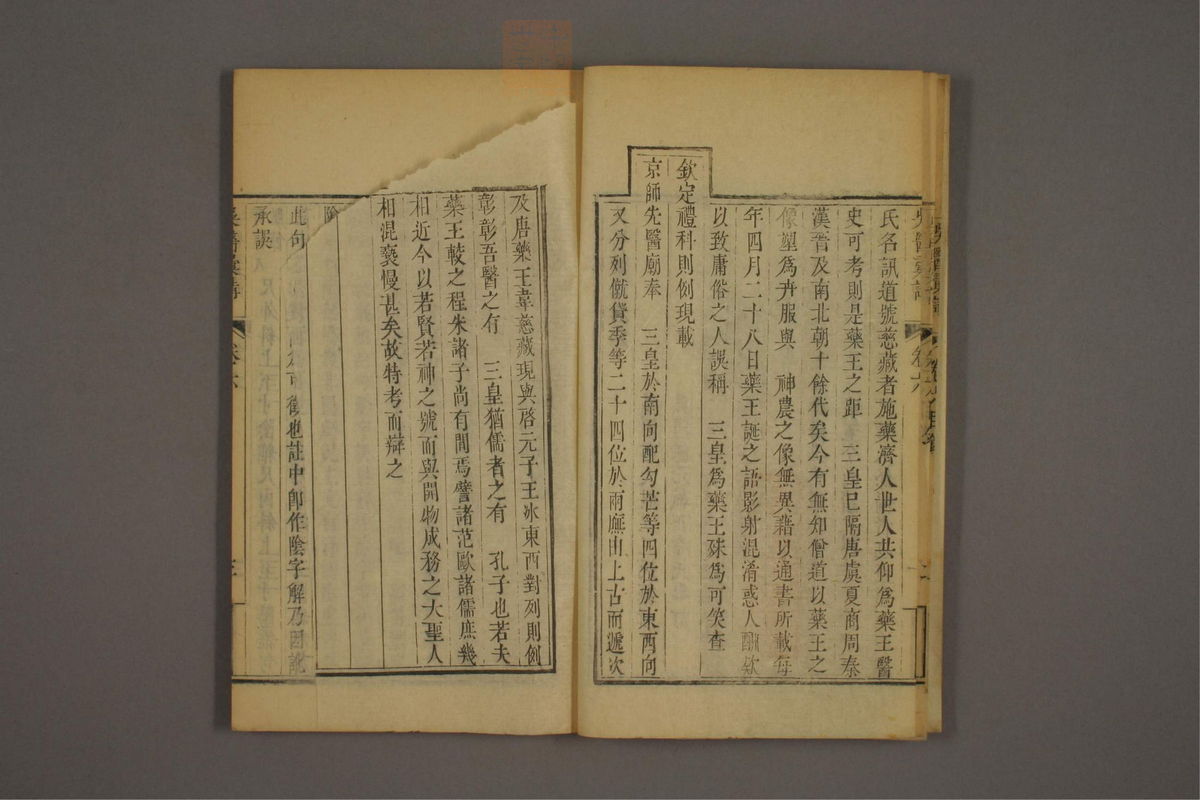 氏名訊道號慈藏者施藥濟人世人共仰為藥王醫
史可考則是藥王之距 三皇已隔唐虞夏商周秦
漢晉及南北朝十餘代矣今有無知僧道以藥王之
像塑為卉服與 神農之像無異藉以通書所載每
年四月二十八日藥王誕之語影射混淆惑人酬欸
以致庸俗之人誤稱 三皇為藥王殊為可笑查
欽定禮科則例現載
京師先醫廟奉 三皇於南向配勾芒等四位於東西向
又分列僦貸季等二十四位於兩廡由上古而遞次
及唐藥王韋慈藏現與啓元子王冰東西對列則例
彰彰吾醫之有 三皇猶儒者之有 孔子也若夫
藥王較之程朱諸子尚有間焉譬諸范歐諸儒庶幾
相近今以若賢若神之號而與開物成務之大聖人
相混褻慢甚矣故特考而辯之
陰
此句
徵也註中卽作陰字解乃因訛
承誤
吳醫彙講
卷六